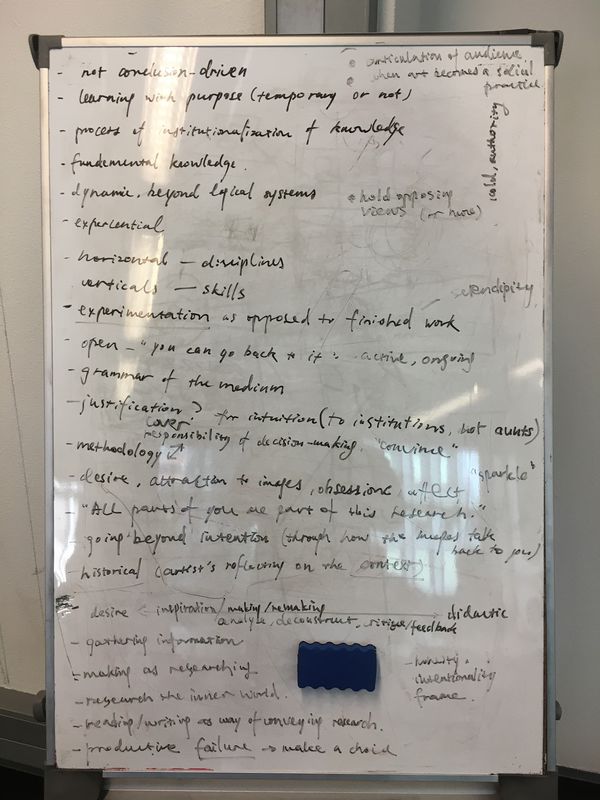 - not conclusion-driven
• articulation of audience
• when art becomes a solicit practice
- learning with purpose (temporary or not)
- process of institutionalization of knowledge
authority
- fundamental knowledge.
- dynamic, beyond logical systems
* hold opposing views (or more)
- experiential
- horizontal — disciplines
verticals — skills
serendipity
- experimentation as opposed to finished work
- open - "you can go back to it": active, ongoing
- grammar of the medium
- justification? for intuition (to institutions, not aunts)
cover
responsibility of decision-making, "convince"
- methodology
- desire, attraction to images, obsessions, affect, "sparkle"
- "ALL parts of you are part of this research."
- going beyond intention (through how the images talk back to you)
- historical (artist's reflecting on the context)
desire ← inspiration/making/remaking → didactic
analyze, deconstruct, critique/feedback
- gathering information
- making as researching
- honesty.
intentionality
frame.
- research the inner world.
- reading/writing as way of conveying research.
- productive failure → make a choid